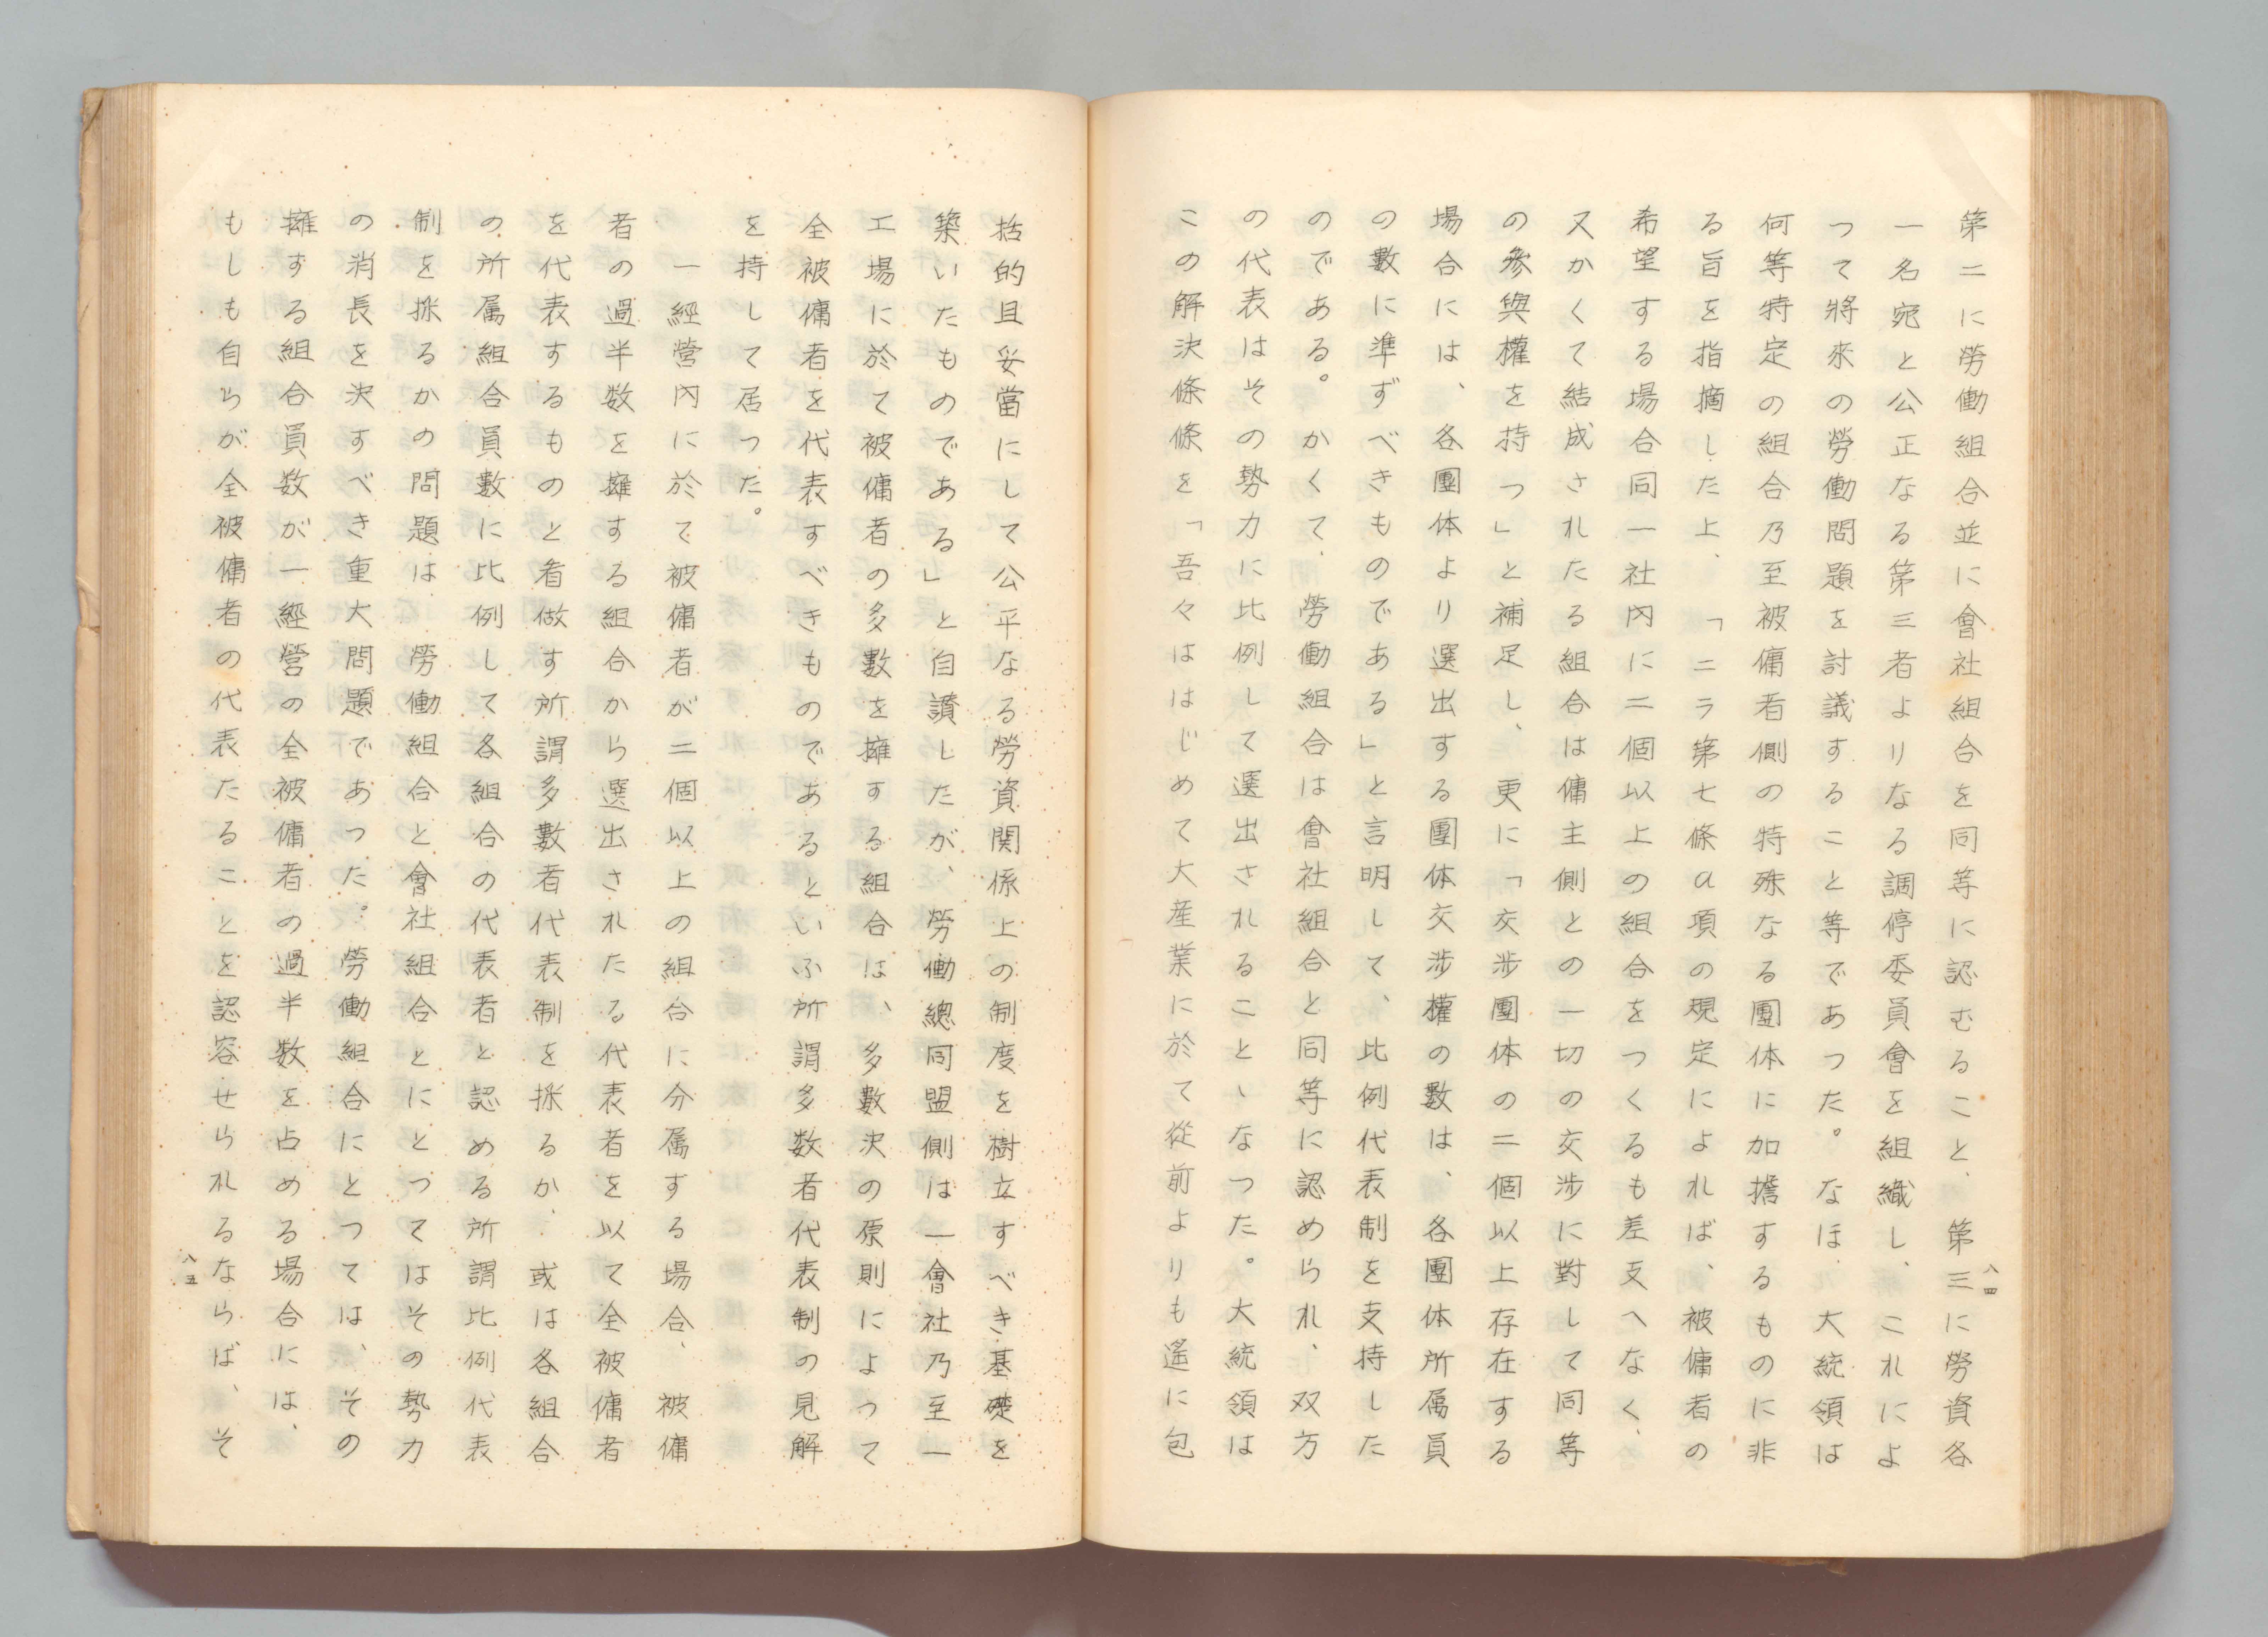 第二に勞働組合並に會社組合を同等に認むること、第三に勞資各
一名宛と公正なる第三者よりなる調停委員會を組織し、これによ
つて將來の勞働問題を討議すること等であつた。なほ、大統領は
何等特定の組合乃至被傭者側の特殊なる團体に加擔するものに非
る旨を指摘した上、「ニラ第七條a項の規定によれば、被傭者の
希望する場合同一社內に二個以上の組合をつくるも差支へなく、
又かくて結成されたる組合は傭主側との一切の交渉に對して同等
の參與權を持つ」と補足し、更に「交渉團体の二個以上存在する
場合には、各團体より選出する團体交渉權の數は、各團体所属員
の數に準ずべきものである」と言明して、比例代表制を支持した
のである。かくて、勞働組合は會社組合と同等に認められ、双方
の代表はその勢力に比例して選出されることゝなつた。大統領は
この解決條條を「吾々ははじめて大産業に於て從前よりも遙に包
八四
括的且妥當にして公平なる勞資関係上の制度を樹立すべき基礎を
築いたものである」と自讃したが、勞働總同盟側は一會社乃至一
工場に於て被傭者の多數を擁する組合は、多數決の原則によつて
全被傭者を代表すべきものであるといふ所謂多数者代表制の見解
を持して居つた。
一經營內に於て被傭者が二個以上の組合に分属する場合、被傭
者の過半数を擁する組合から選出されたる代表者を以て全被傭者
を代表するものと看做す所謂多數者代表制を採るか、或は各組合
の所属組合員數に比例して各組合の代表者と認める所謂比例代表
制を採るかの問題は、勞働組合と會社組合とにとつてはその勢力
の消長を決すべき重大問題であつた。勞働組合にとつては、その
擁する組合員数が一經營の全被傭者の過半数を占める場合には、
もしも自らが全被傭者の代表たることを認容せられるならば、そ
八五